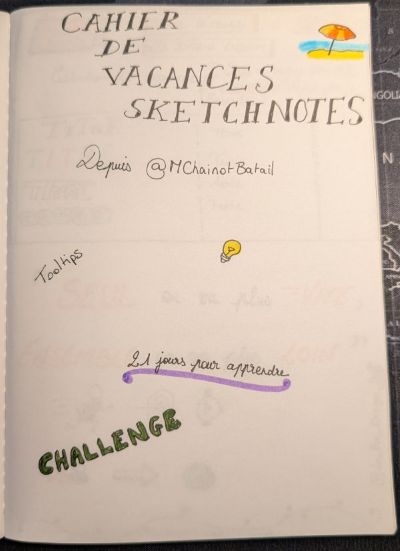 CAHIER
DE
VACANCES
SKETCHNOTES
Depuis @MChainotBatail
Tooltips
21 jours pour apprendre
CHALLENGE